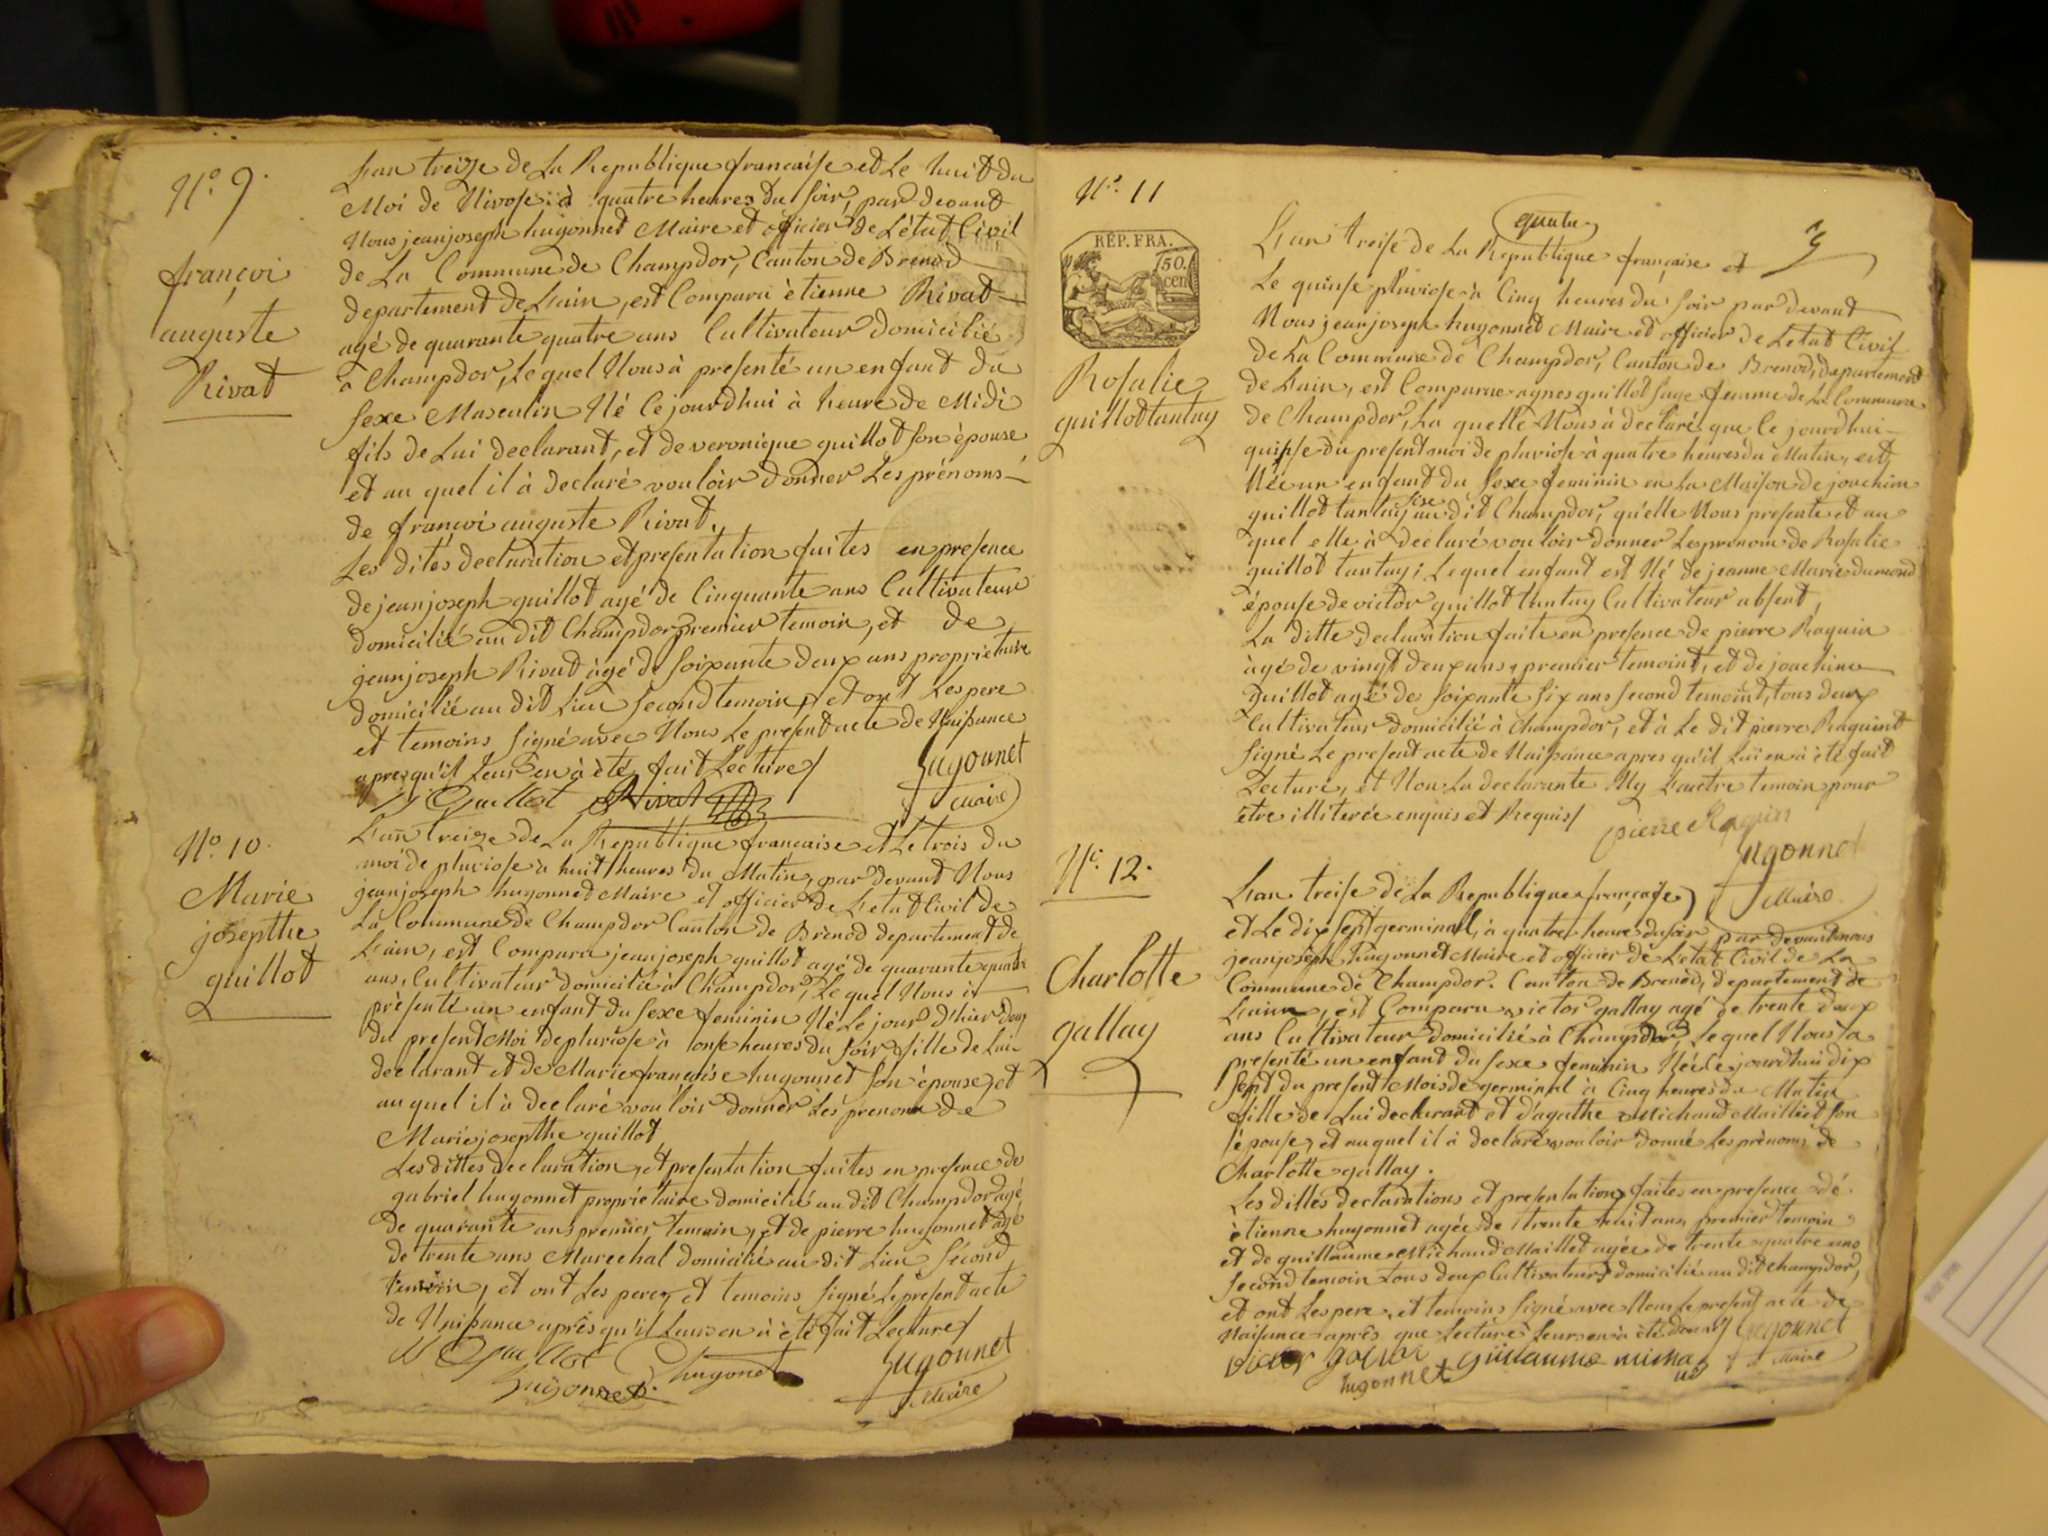 N.º 9.
françoi
auguste
Rivat
L'an treize de La Republique francaise et Le huit du
Moi de Nivose à quatre heures du soir, par devant
Nous jeanjoseph hugonnet Maire et officier de L'état Civil
de La Commune de Champdor, Canton de Brenod
departement de Lain, est Comparu ètienne Rivat
agé de quarante quatre ans Cultivateur domicilié
à Champdor, Lequel Nous à presenté un enfant du
sexe Masculin Né Cejourdhui à heure de Midi
fils de Lui declarant, et de veronique guillot son èpouse
et au quel il à declaré vouloir donner Les prénoms
de françoi auguste Rivat,
Les dites declaration et presentation faites en presence
de jeanjoseph guillot agé de Cinquante ans Cultivateur
domicilié au dit Champdor premier temoin, et de
jeanjoseph Rivat àgé de soixante deux ans proprietaire
domicilié au dit Lieu second temoin, et ont Les pere
et temoins signé avec Nous Le present acte de Naissance
apres qu'il Leur en à èté fait Lecture/
guillot Rivat hugonnet
Maire
N.º 10.
Marie
josepthe
guillot
L'an treize de La Republique francaise et Le trois du
moi de pluviose à huit heures du Matin, par devant Nous
jeanjoseph hugonnet Maire et officier de L'etat Civil de
La Commune de Champdor Canton de Brenod departement de
Lain, est Comparu jeanjoseph guillot agé de quarante quatre
ans, Cultivateur domicilié à Champdor, Lequel Nous à
présenté un enfant du sexe feminin Né Le jour d'hier deux
du present Moi de pluviose à onse heures du soir fille de Lui
declarant et de Marie francoise hugonnet son èpouse, et
au quel il à declaré vouloir donner Les prenom de
Marie josepthe guillot
Les dittes declaration, et presentation faites en presence de
gabriel hugonnet propriétaire domicilié au dit Champdor agé
de quarante ans premier temoin, et de pierre hugonnet agé
de trente ans Marechal domicilié au dit Lieu second
temoin, et ont Les peres et temoins signé Le present acte
de Naissance aprés qu'il Leur en à èté fait Lecture/
guillot hugonet hugonnet
hugonnet Maire
N.º 11
quatre
REP. FRA.
50.
cen
Rosalie
guillot tantay
L'an treise de La Republique française et
Le quinse pluviose, à Cinq heures du soir par devant
Nous jeanjoseph hugonnet Maire et officier de L'etat Civil
de La Commune de Champdor, Canton de Brenod, departement
de Lain, est Comparue agnes guillot sage femme de La Commune
de Champdor, La quelle Nous à declaré que Ce jourdhui
quinse du present moi de pluviose à quatre heures du Matin, est
Né un enfant du sexe feminin en La Maison de joachim
guillot tantay sise au dit Champdor, qu'elle Nous presente et au
quel elle à declaré vouloir donner Les prenom de Rosalie
guillot tantay; Lequel enfant est Né de jeanne Marie dumond
épouse de victor guillot tantay Cultivateur absent,
La ditte declaration faite en presence de pierre Raquin
àgé de vingt deux ans, premier temoint, et de joachim
guillot agé de soixante six ans second temoint, tous deux
Cultivateur domicilié à Champdor, et à Le dit pierre Raquint
signé Le present acte de Naissance apres qu'il Lui en à èté fait
Lecture, et Non La declarante Ny L'autre temoin pour
être illiterée enquis et Requis/
pierre Raquin
hugonnet
Maire
N.º 12.
Charlotte
gallay
L'an treise de La Republique française
et Le dix sept germinal, à quatre heures du soir par devant nous
jeanjoseph hugonnet Maire et officier de L'etat Civil de La
Commune de Champdor. Canton de Brenod, departement de
Lain, est Comparu victor gallay agé de trente deux
ans Cultivateur domicilié à Champdor, Lequel Nous a
presenté un enfant du sexe feminin Né Le jourdhui dix
sept du present Mois de germinal à Cinq heures du Matin
fille de Lui declarant et d'agathe Michaud Maillet son
épouse, et auquel il à declaré vouloir donné Les prénoms de
Charlotte gallay.
Les dittes declarations et presentation faites en presence de
ètienne hugonnet agée de trente huit ans, premier temoin
et de guillaume Michaud Maillet agée de trente quatre ans
second temoin tous deux Cultivateurs domicilié au dit Champdor,
et ont Les pere, et temoins signé avec Nous Le present acte de
Naissance aprés que Lecture Leur en à èté donné/ hugonnet
victor guillaume Maire
hugonnet